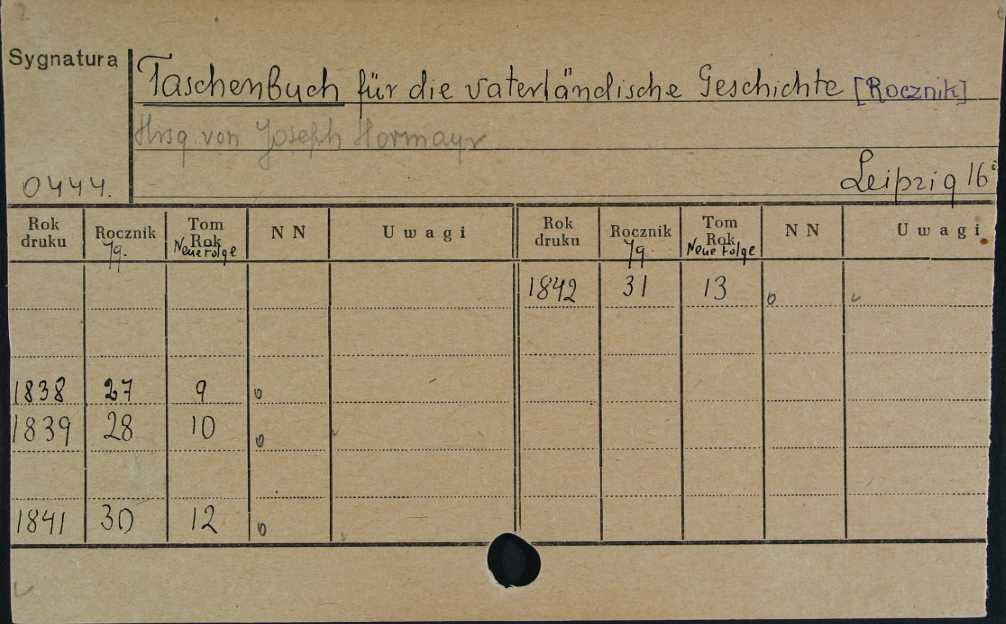 Sygnatura
Taschenbuch für die vaterländische Geschichte [Rocznik]
Hrsg von Joseph Hormayr
0444.
Leipzig 16°
Rok druku Rocznik Jg. Tom Rok Neue Folge NN Uwagi Rok druku Rocznik Jg. Tom Rok Neue Folge NN Uwagi
1842 31 13
1838 27 9
1839 28 10
1841 30 12